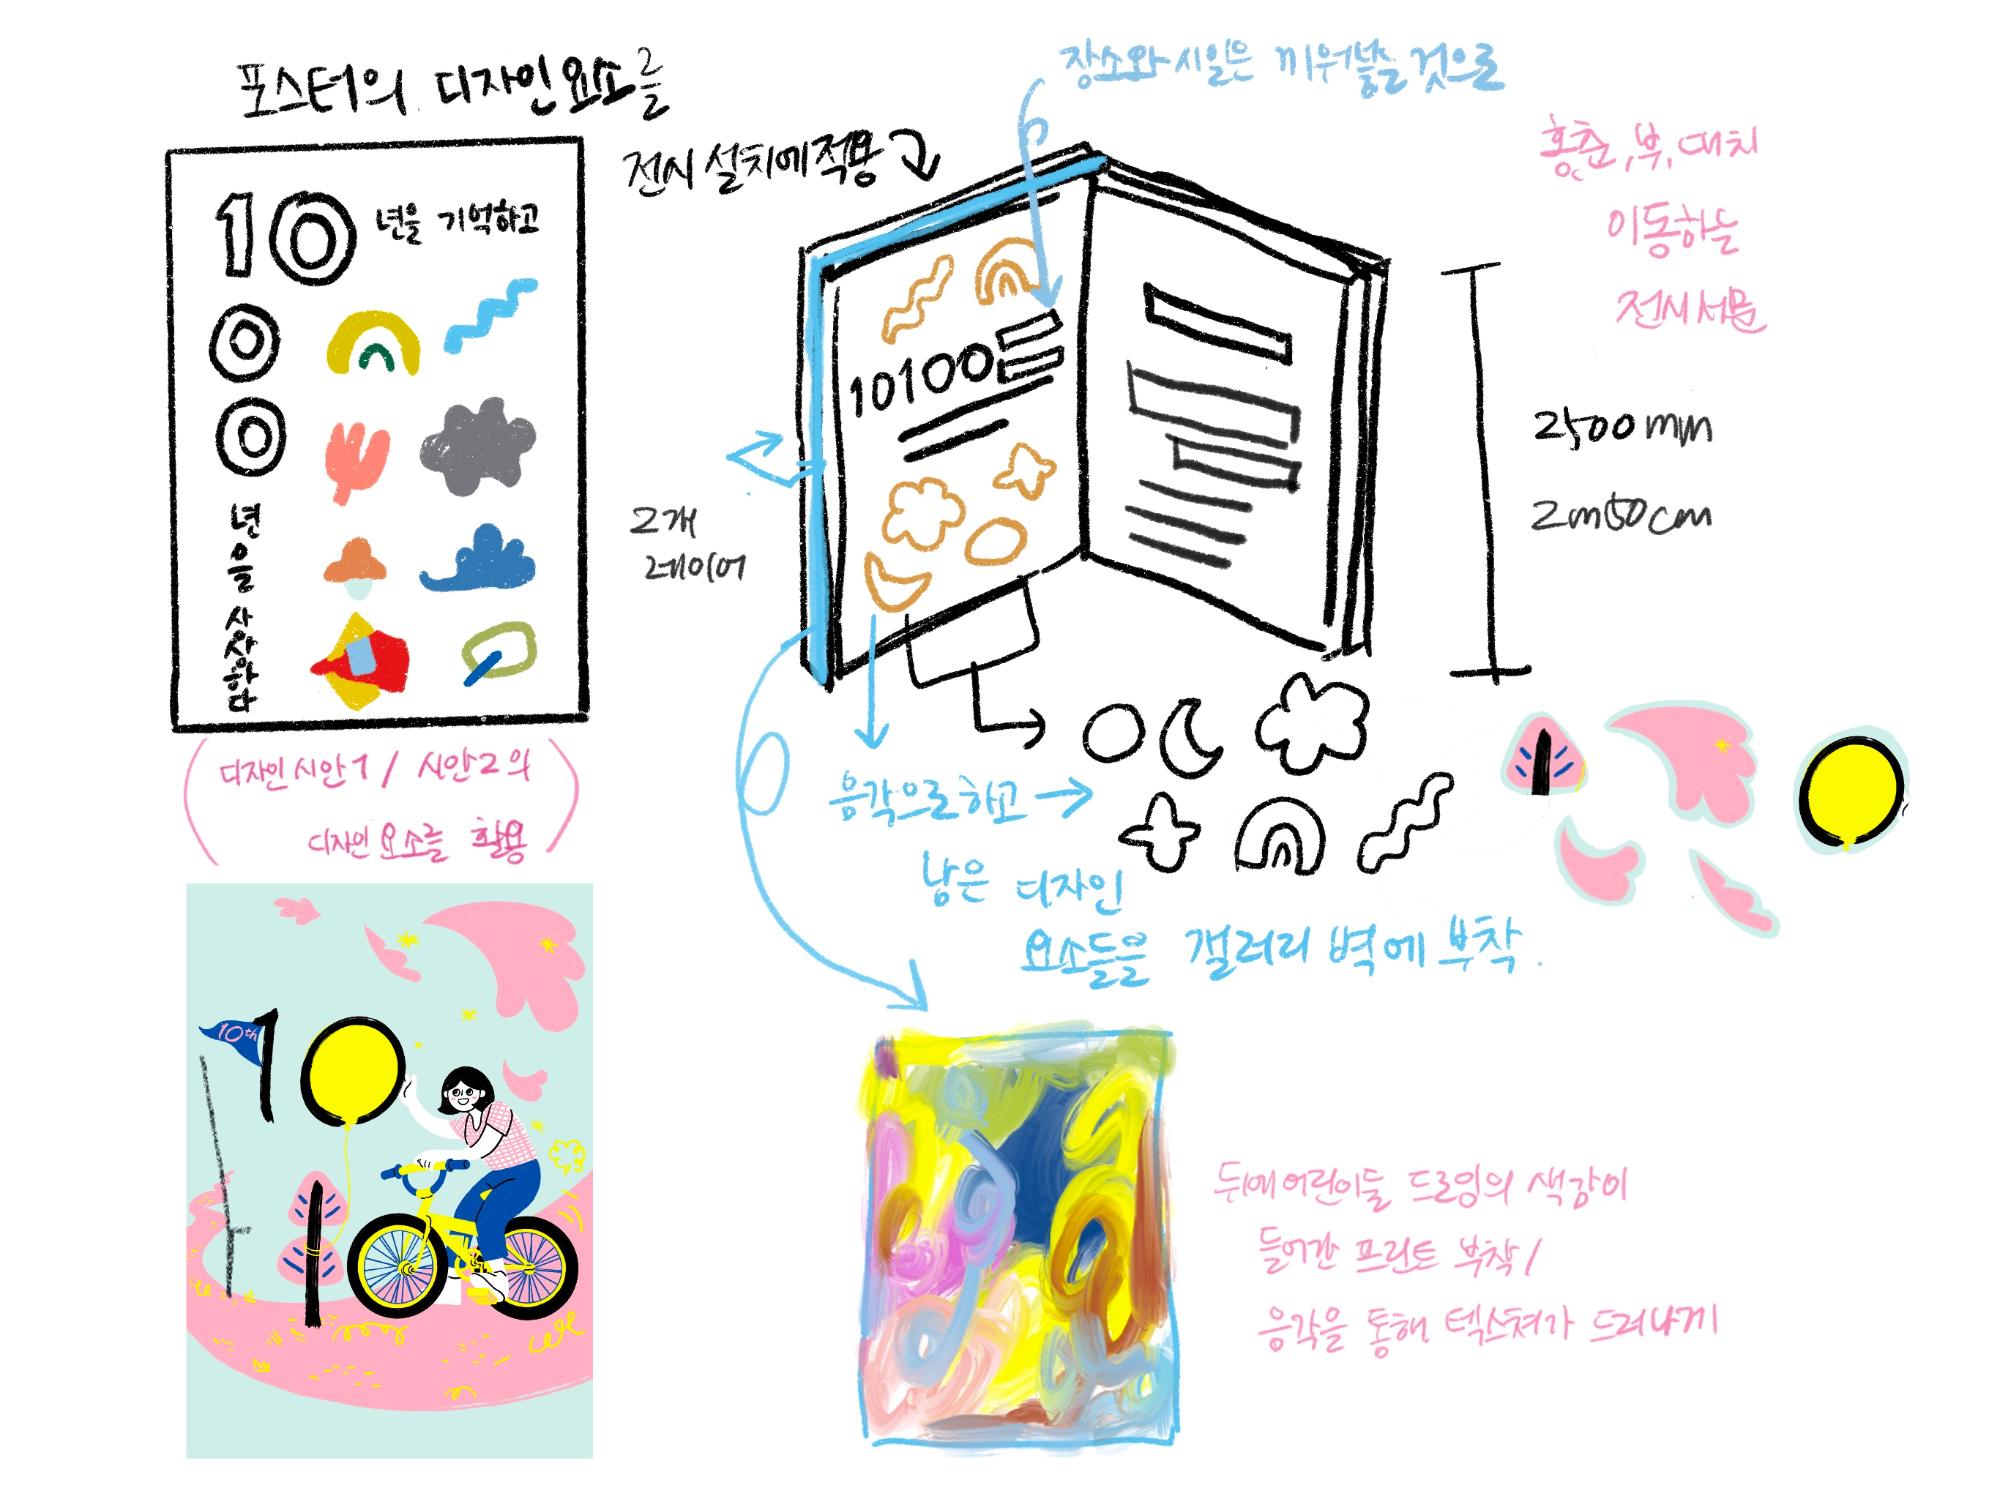 포스터의 디자인요소를
전시 설치에 적용
10년을 기억하고
0
0
년
을
사
하
다
(디자인 시안1 / 시안2의
디자인 요소를 활용)
10th
10
장소와 시일은 끼워넣는 것으로
10100
2개
레이어
이동하는
전시 서문
2500mm
2m50cm
음각으로 하고
남은 디자인
요소들을 갤러리 벽에 부착.
뒤에 어린이들 드로잉의 색감이
들어간 프린트 부착/
음각을 통해 텍스쳐가 드러나게